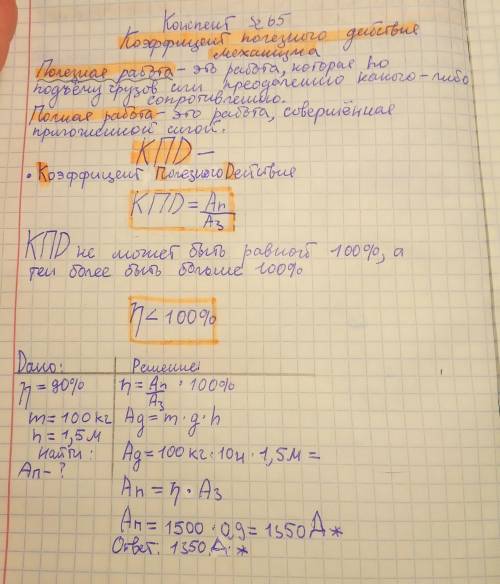 Конспект § 65
Коэффицент полезного действие
механизма
Полезная работа – это работа, которая по
подъёму грузов или преодалению какого-либо
сопротивлению.
Полная работа – это работа, совершённая
приложенной силой.
КПD –
• Коэффицент Полезного Dействие
КПD = Aп/Aз
КПD не может быть равной 100%, а
тем более быть больше 100%
η < 100%
Dано: Решение:
η = 90% η = Aп/Aз · 100%
m = 100 кг Ag = m · g · h
h = 1,5 м
Найти: Ag = 100 кг · 10н · 1,5м =
Aп – ?
Aп = η · Aз
Aп = 1500 · 0,9 = 1350 Дж
Ответ: 1350 Дж